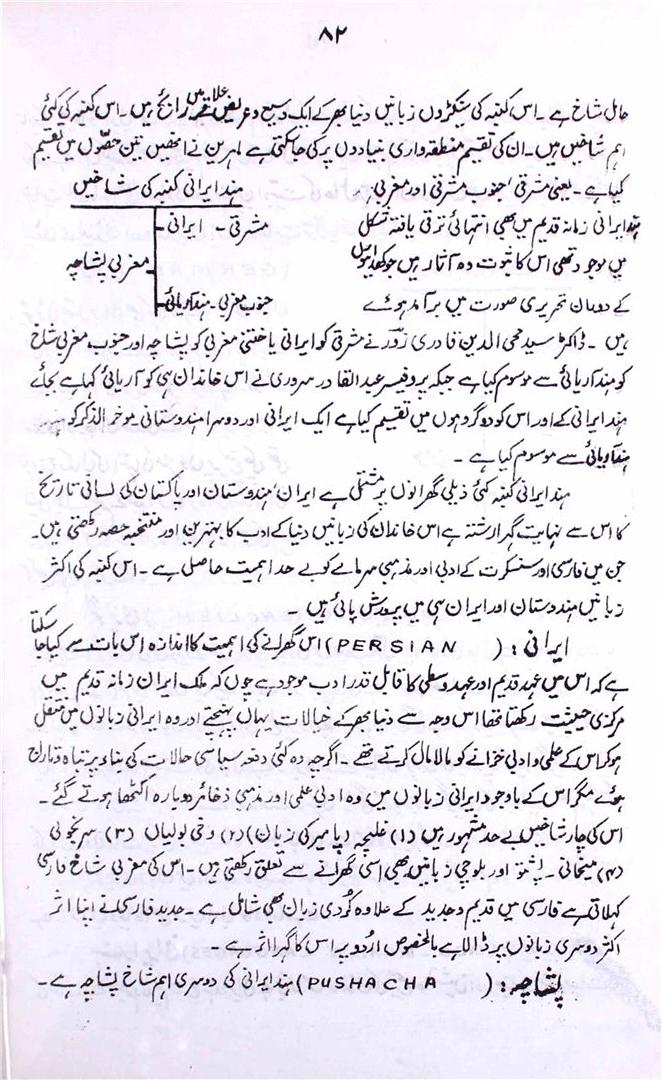 ۸۲
حال شاخ ہے۔ اس کنبہ کی سیکڑوں زبانیں دنیا بھر کے ایک وسیع و عریض علاقہ میں رائج ہیں۔ اس کنبہ کی کئی
اہم شاخیں ہیں۔ ان کی تقسیم منطقہ داری بنیادوں پر کی جا سکتی ہے ماہرین نے انھیں تین حصّوں میں تقسیم
کیا ہے۔ یعنی مشرقی، جنوب مشرقی اور مغربی۔
ہند ایرانی کنبہ کی شاخیں
ہند ایرانی زمانہ قدیم میں بھی انتہائی ترقی یافتہ شکل
مشرقی - ایرانی
میں موجود تھی اس کا ثبوت وہ آثار ہیں جو کھدائیوں
مغربی پشاچہ
کے دوران تحریری صورت میں برآمد ہوئے
جنوب مغربی - ہند آریائی
ہیں۔ ڈاکٹر سید محی الدین قادری زورؔ نے مشرقی کو ایرانی یا ختنی مغربی کو پشاچہ اور جنوب مغربی شاخ
کو ہند آریائی سے موسوم کیا ہے جبکہ پروفیسر عبدالقادر سروری نے اس خاندان ہی کو آریائی کہا ہے بجائے
ہند ایرانی کے اور اس کو دو گروہوں میں تقسیم کیا ہے ایک ایرانی اور دوسرا ہندوستانی موخر الذکر کو
ہند آریائی سے موسوم کیا ہے۔
ہند ایرانی کنبہ کئی ذیلی گھرانوں پر مشتمل ہے ایران، ہندوستان اور پاکستان کی لسانی تاریخ
کا اس سے نہایت گہرا رشتہ ہے اس خاندان کی زبانیں دنیا کے ادب کا بہترین اور منتخبہ حصہ رکھتی ہیں۔
جن میں فارسی اور سنسکرت کے ادبی اور مذہبی سرمایے کو بے حد اہمیت حاصل ہے۔ اس کنبہ کی اکثر
زبانیں ہندوستان اور ایران ہی میں پرورش پائی ہیں۔
ایرانی: (PERSIAN) اس گھرانے کی اہمیت کا اندازہ اس بات سے کیا جا سکتا
ہے کہ اس میں عہد قدیم اور عہد وسطی کا قابل قدر ادب موجود ہے چوں کہ ملک ایران زمانہ قدیم میں
مرکزی حیثیت رکھتا تھا اس وجہ سے دنیا بھر کے خیالات یہاں پہنچتے اور وہ ایرانی زبانوں میں منتقل
ہو کر اس کے علمی و ادبی خزانے کو مالا مال کرتے تھے۔ اگرچہ وہ کئی دفعہ سیاسی حالات کی بناء پر تباہ و تاراج
ہوئے مگر اس کے باوجود ایرانی زبانوں میں وہ ادبی علمی اور مذہبی ذخائر دوبارہ اکٹھا ہوتے گئے۔
اس کی چار شاخیں بے حد مشہور ہیں (۱) غلیچہ (پامیر کی زبان) (۲) وخی بولیاں (۳)
(۴) میخانی۔ پشتو اور بلوچی زبانیں بھی اسی گھرانے سے تعلق رکھتی ہیں۔ اس کی مغربی شاخ فارسی
کہلاتی ہے فارسی میں قدیم و جدید کے علاوہ کُردی زبان بھی شامل ہے۔ جدید فارسی نے اپنا اثر
اکثر دوسری زبانوں پر ڈالا ہے بالخصوص اُردو پر اس کا گہرا اثر ہے۔
پشاچہ: (PUSHACHA) ہند ایرانی کی دوسری اہم شاخ پشاچہ ہے۔